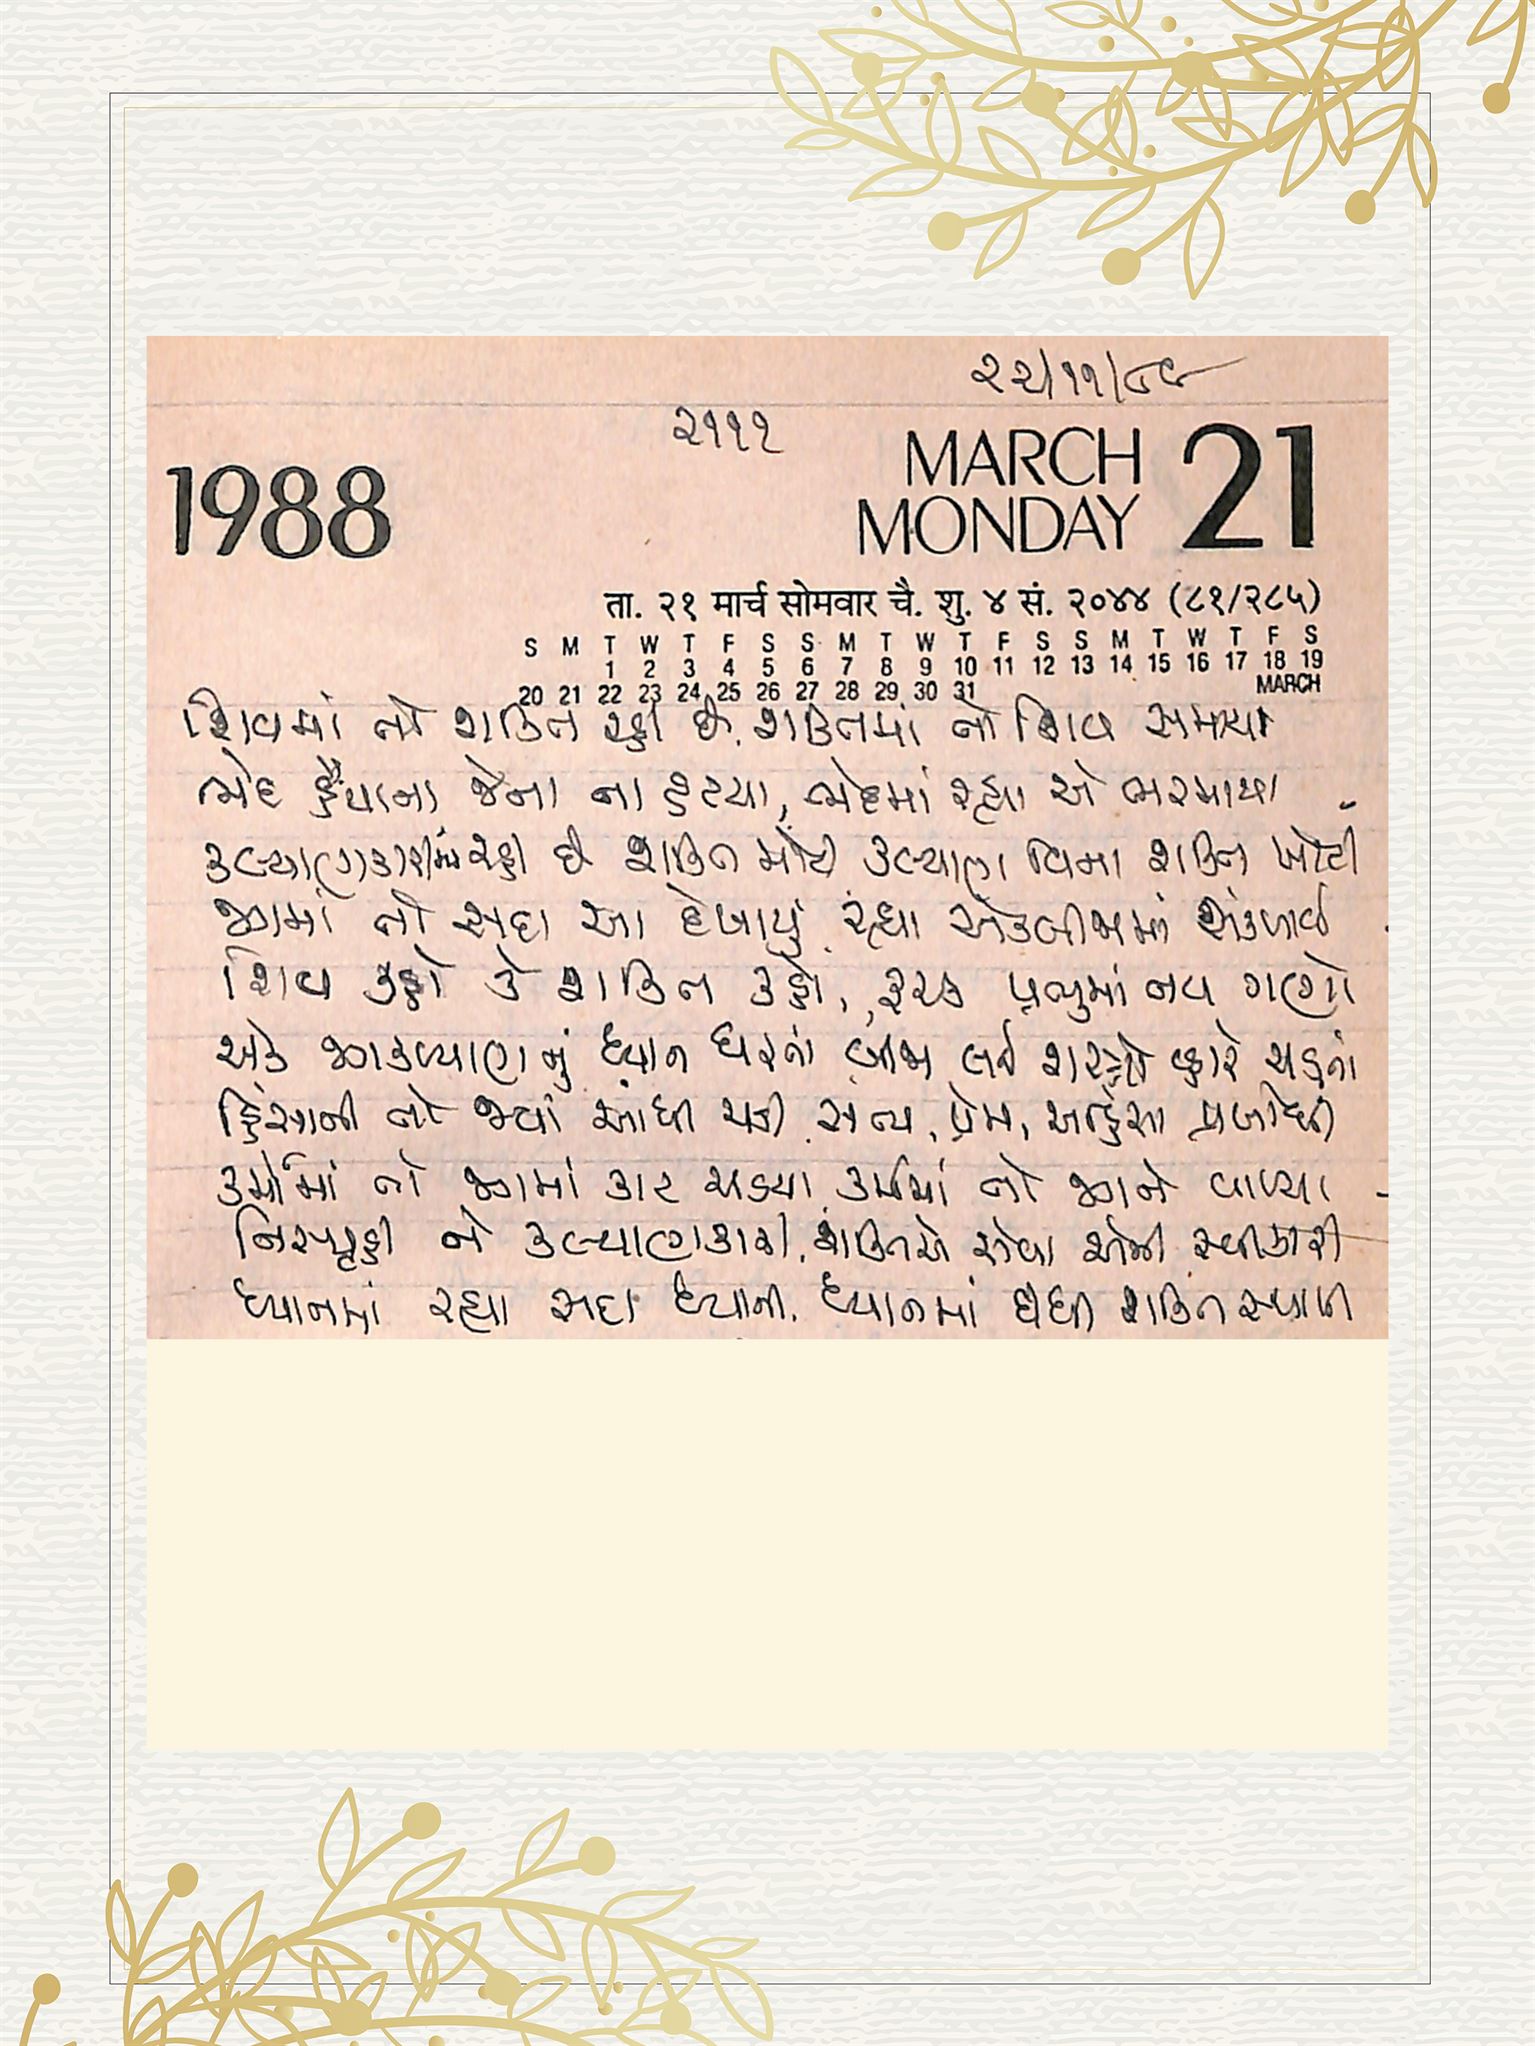 ૨૨/૧૧/૮૯
૨૧૧૧
1988
MARCH 21
MONDAY
ता. २१ मार्च सोमवार चै. शु. ४ सं. २०४४ (८१/२८५)
S M T W T F S S M T W T F S S M T W T F S
1 2 3 4 5 6 7 8 9 10 11 12 13 14 15 16 17 18 19
20 21 22 23 24 25 26 27 28 29 30 31 MARCH
શિવમાં તો શક્તિ રહી છે, શક્તિમાં તો શિવ સમાયા
ભેદ હૈયાના જેના ના હટયા, ભેદમાં રહ્યા એ ભરમાયા
કલ્યાણકારીમાં રહી છે શક્તિ મોટી કલ્યાણ વિના શક્તિ ખોટી
જગમાં તો સદા આ દેખાયું રહ્યા એકબીજામાં સંકળાઈ
શિવ કહો કે શક્તિ કહો, ફરક પ્રભુમાં નવ ગણો
એક જગકલ્યાણનું ધ્યાન ધરતાં બીજા લઈ શસ્ત્રો વ્હારે ચડતાં
હિંસાની તો જ્યાં આંધી ચડી સત્ય, પ્રેમ, અહિંસા પ્રબોધી
કર્મોમાં તો જગમાં કાટ ચડયા કર્મમાં તો જગને વાળ્યા
નિસ્પૃહી ને કલ્યાણકારી, શક્તિએ સેવા એની સ્વીકારી
ધ્યાનમાં રહ્યા સદા ધ્યાની, ધ્યાનમાં દીધી શક્તિ સ્થાપી